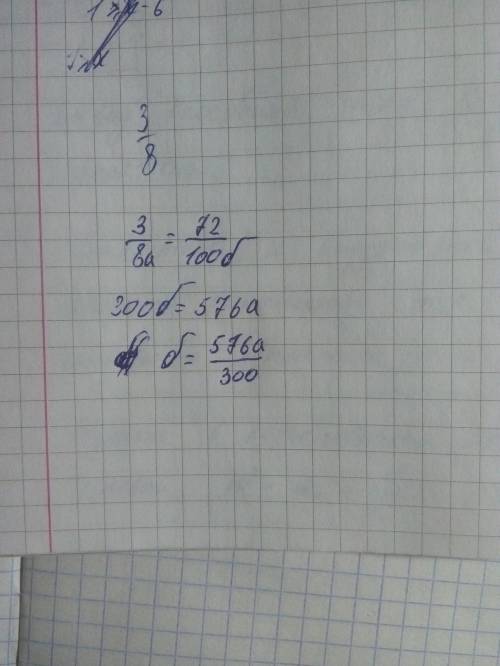 3/8
3/8а = 72/100б
300б = 576а
б = 576а/300